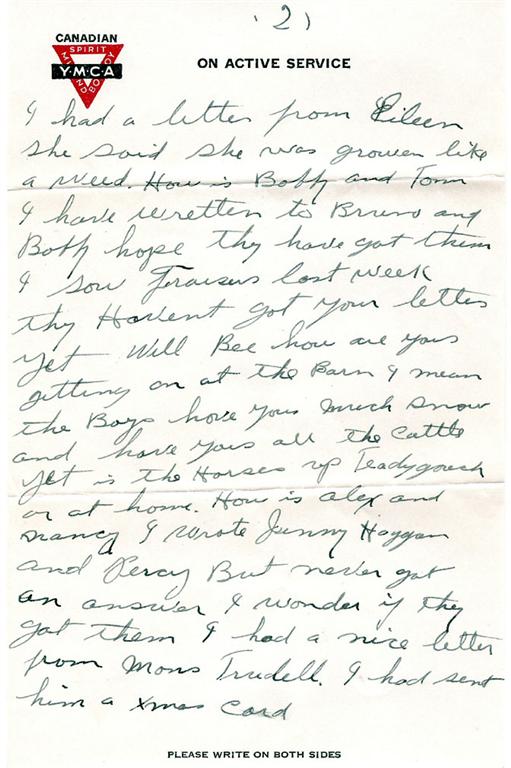 (2)
CANADIAN
SPIRIT
MIND BODY
Y·M·C·A
ON ACTIVE SERVICE
I had a letter from Eileen
she said she was growen like
a weed. How is Bobby and Tom
I have wretten to Bruno and
Bobby hope thy have got them
I sow last week
thy Havent got your letter
yet Will Bee how are yous
getting on at the Barn I mean
the Boys have yous much snow
and have yous all the Cattle
yet is the Horses up
or at home. How is alex and
nancy I wrote Jinny Hoggan
and Percy But never got
an answer I wonder if they
got them I had a nice letter
from Mons Trudell. I had sent
him a xmas Card
PLEASE WRITE ON BOTH SIDES